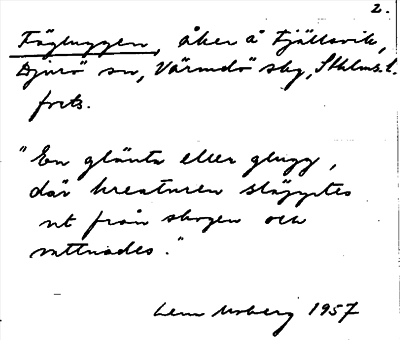 2.
Fägluggen, åker å Fjällsvik,
Djurö sn, Värmdö skg, Sthlms l.
forts.
"En glänta eller glugg,
där kreaturen släpptes
ut från skogen och
vattnades."
Moberg 1957